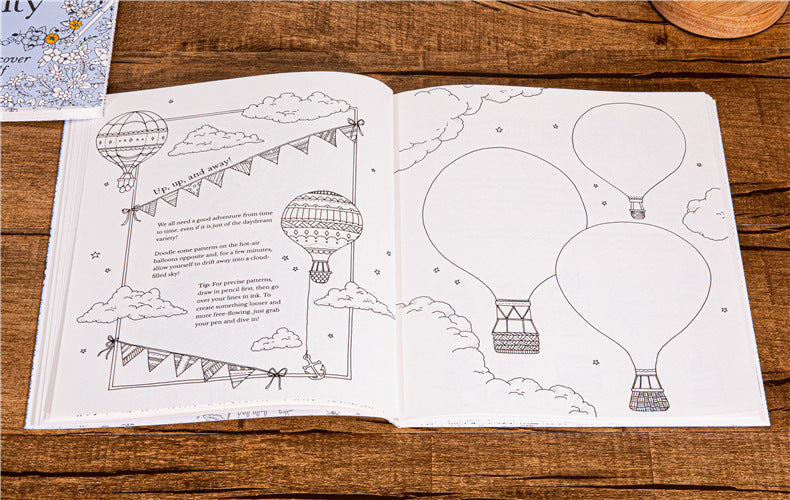 Up, up, and away!
We all need a good adventure from time
to time, even if it is just of the daydream
variety!
Doodle some patterns on the hot-air
balloons opposite and, for a few minutes,
allow yourself to drift away into a cloud-
filled sky!
Tip: For precise patterns,
draw in pencil first, then go
over your lines in ink. To
create something looser and
more free-flowing, just grab
your pen and dive in!